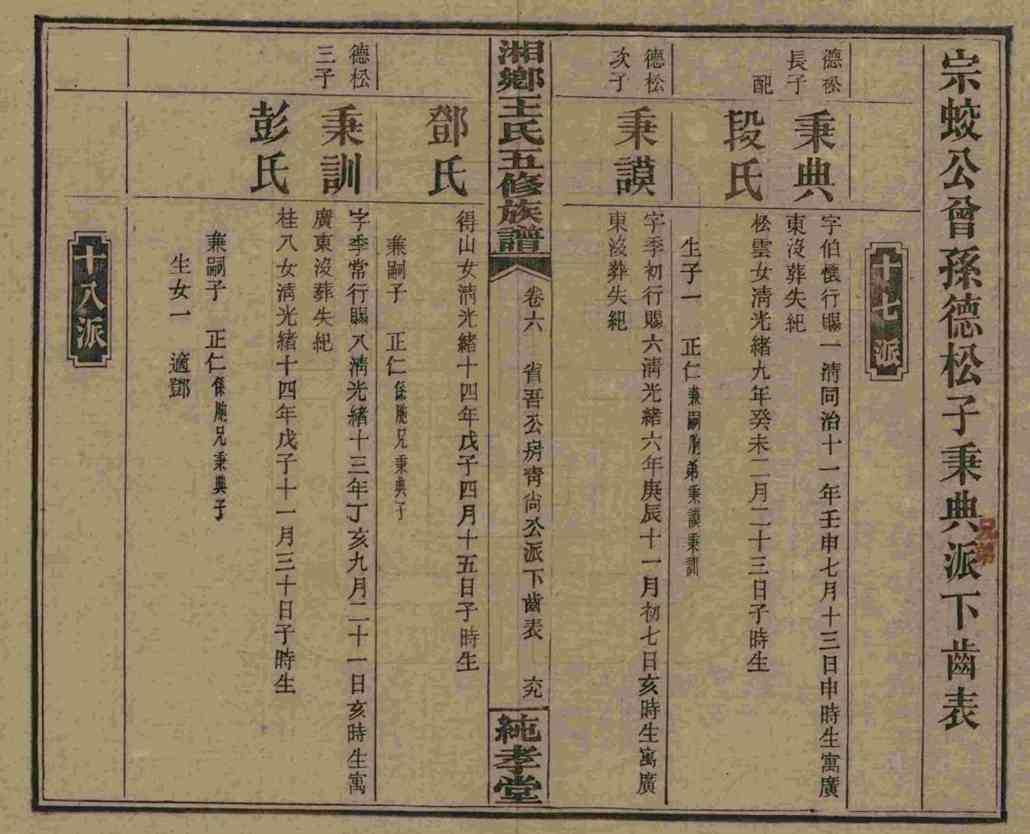 宗蛟公曾孫德松子秉典派下齒表
兄弟
十七派
德松
長子
秉典
字伯懷行賜一淸同治十一年壬申七月十三日申時生寓廣
東沒葬失紀
配
段氏
松雲女淸光緒九年癸未二月二十三日子時生
生子一 正仁兼嗣胞弟秉謨秉訓
德松
次子
秉謨
字季初行賜六淸光緒六年庚辰十一月初七日亥時生寓廣
東沒葬失紀
湘鄉王氏五修族譜
卷六 省吾公房靑尙公派下齒表
純孝堂
鄧氏
得山女淸光緒十四年戊子四月十五日子時生
兼嗣子 正仁係胞兄秉典子
德松
三子
秉訓
字季常行賜八淸光緒十三年丁亥九月二十一日亥時生寓
廣東沒葬失紀
彭氏
桂八女淸光緒十四年戊子十一月三十日子時生
兼嗣子 正仁係胞兄秉典子
生女一 適鄧
十八派